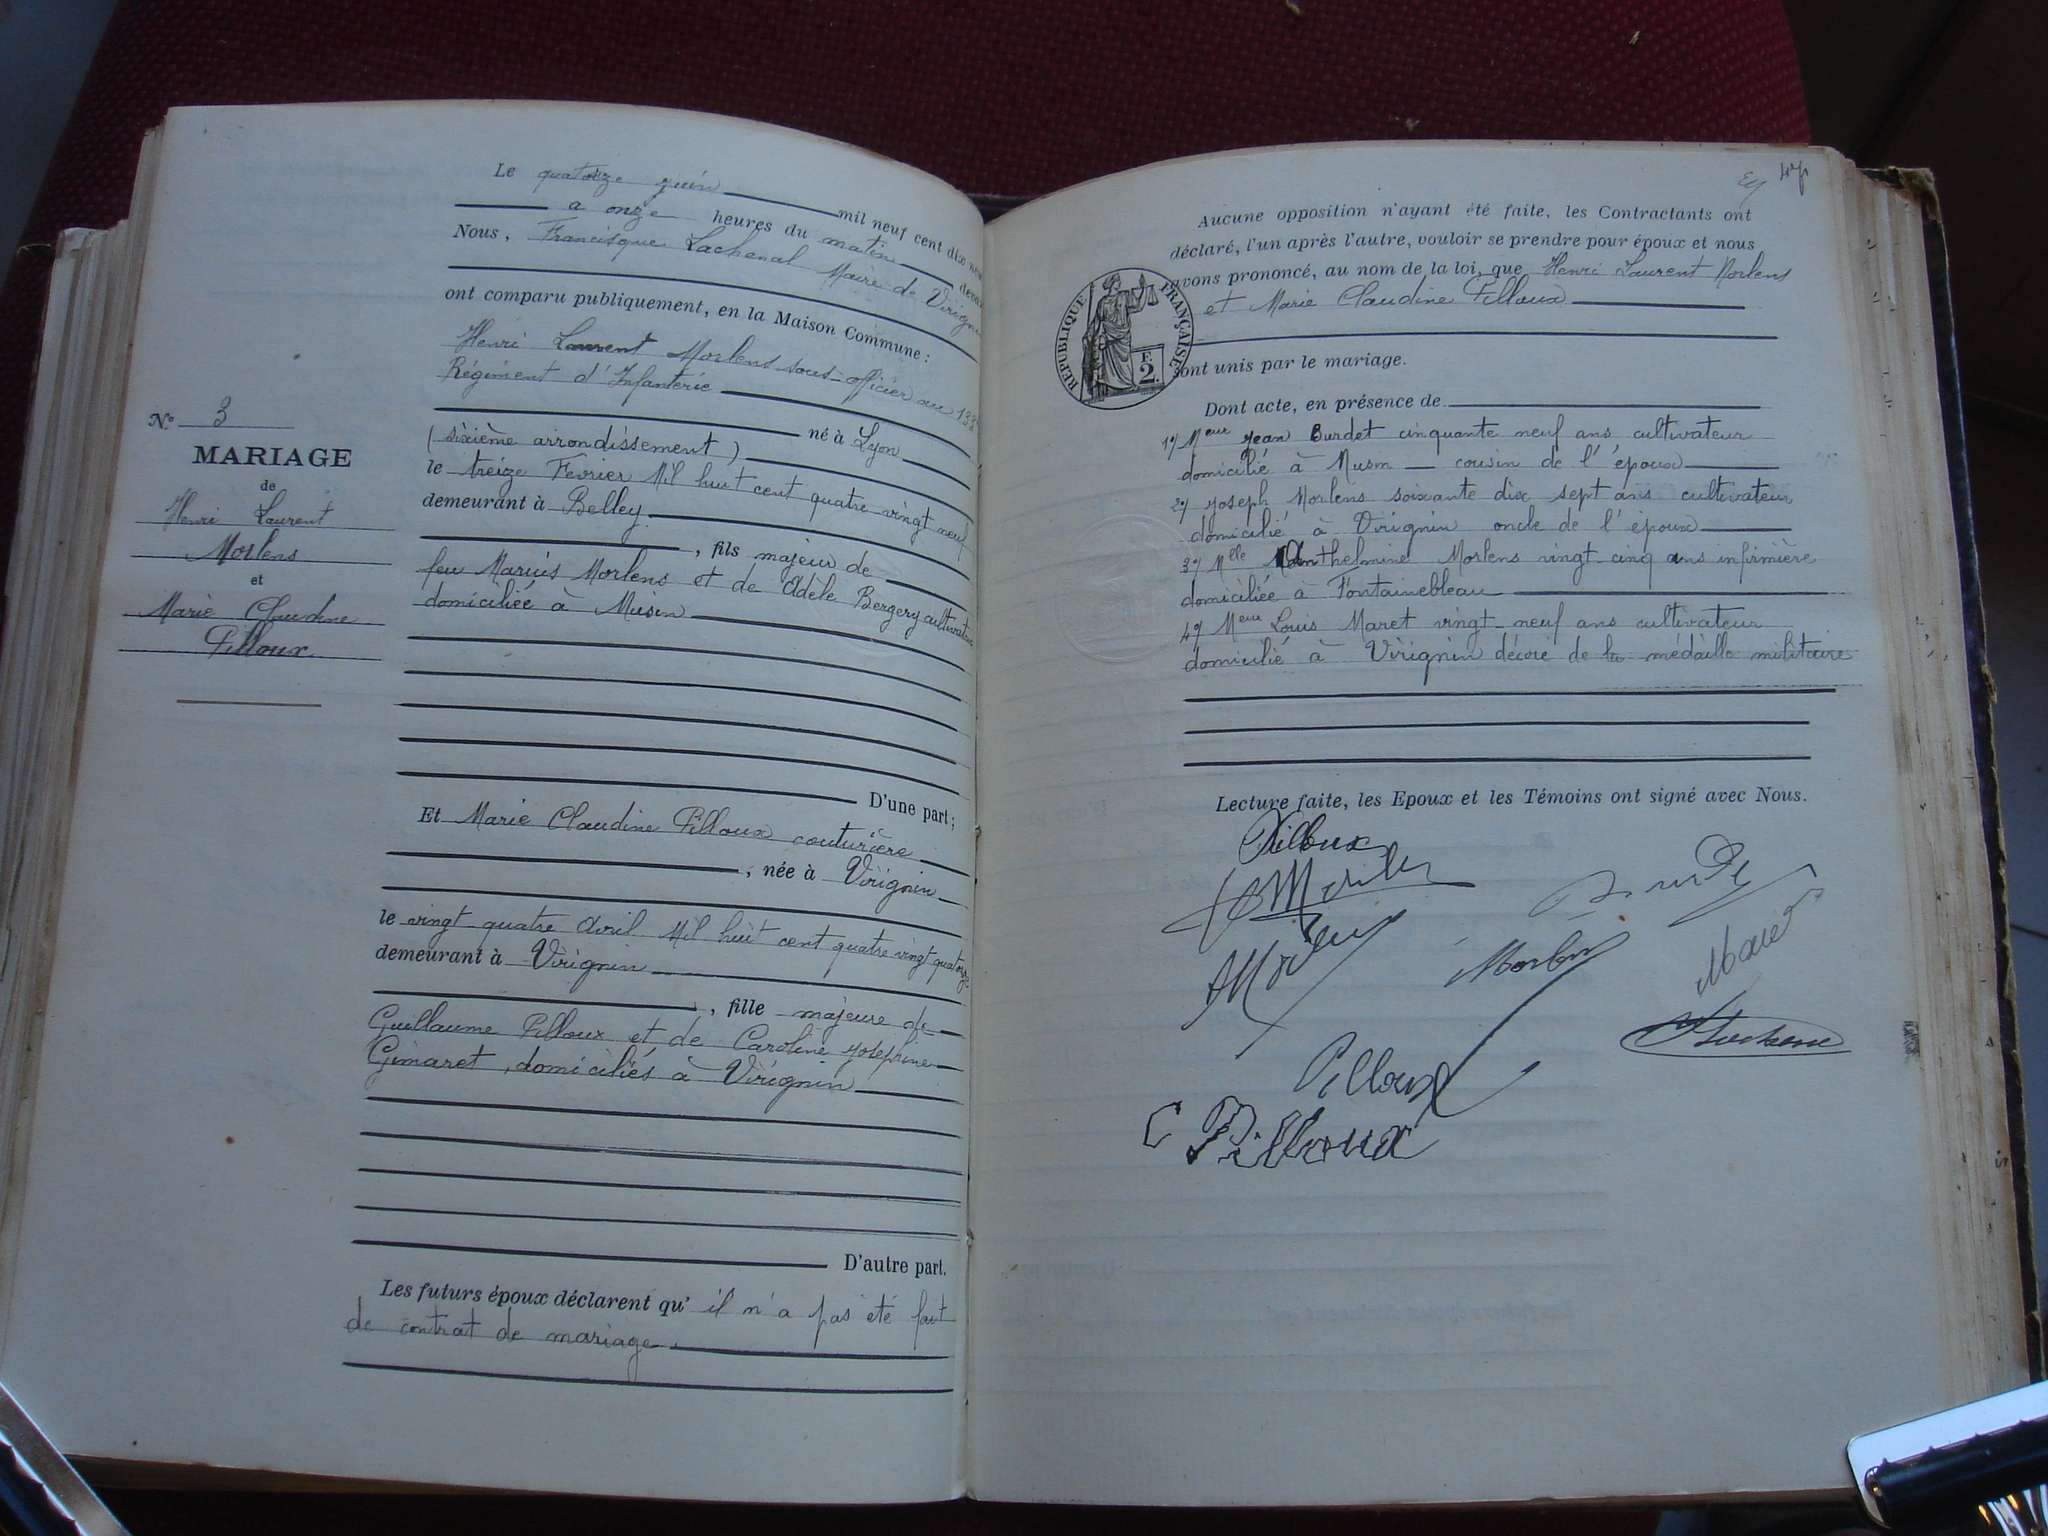 Le quatorze juin mil neuf cent dix neuf
a onze heures du matin devant
Nous, Francisque Lachenal Maire de Virignin
ont comparu publiquement, en la Maison Commune :
Henri Laurent Morlens sous-officier au 133
Régiment d'Infanterie
né à Lyon
(sixième arrondissement)
le treize Fevrier Mil huit cent quatre-vingt neuf
demeurant à Belley
, fils majeur de
feu Marius Morlens et de Adèle Bergery cultivatrice
domiciliée à Musin
D'une part ;
Et Marie Claudine Pilloux couturière
, née à Virignin
le vingt-quatre Avril Mil huit cent quatre vingt quatorze
demeurant à Virignin
, fille majeure de
Guillaume Pilloux et de Caroline Josephine
Gimaret, domiciliés à Virignin
D'autre part.
Les futurs époux déclarent qu' il n'a pas été fait
de contrat de mariage.
N° 3
MARIAGE
de
Henri Laurent
Morlens
et
Marie Claudine
Pilloux
47
Aucune opposition n'ayant été faite, les Contractants ont
déclaré, l'un après l'autre, vouloir se prendre pour époux et nous
avons prononcé, au nom de la loi, que Henri Laurent Morlens
et Marie Claudine Pilloux
sont unis par le mariage.
REPUBLIQUE FRANÇAISE
F. 2.
Dont acte, en présence de
1º/ Meur Jean Burdet cinquante neuf ans cultivateur
domicilié à Musin — cousin de l'époux
2º/ Joseph Morlens soixante dix sept ans cultivateur
domicilié à Virignin oncle de l'époux
3º/ Melle Anthelmine Morlens vingt-cinq ans infirmière
domiciliée à Fontainebleau
4º/ Meur Louis Maret vingt-neuf ans cultivateur
domicilié à Virignin décoré de la médaille militaire
Lecture faite, les Epoux et les Témoins ont signé avec Nous.
Pilloux
Morlens
Maret
Pilloux
C Pilloux